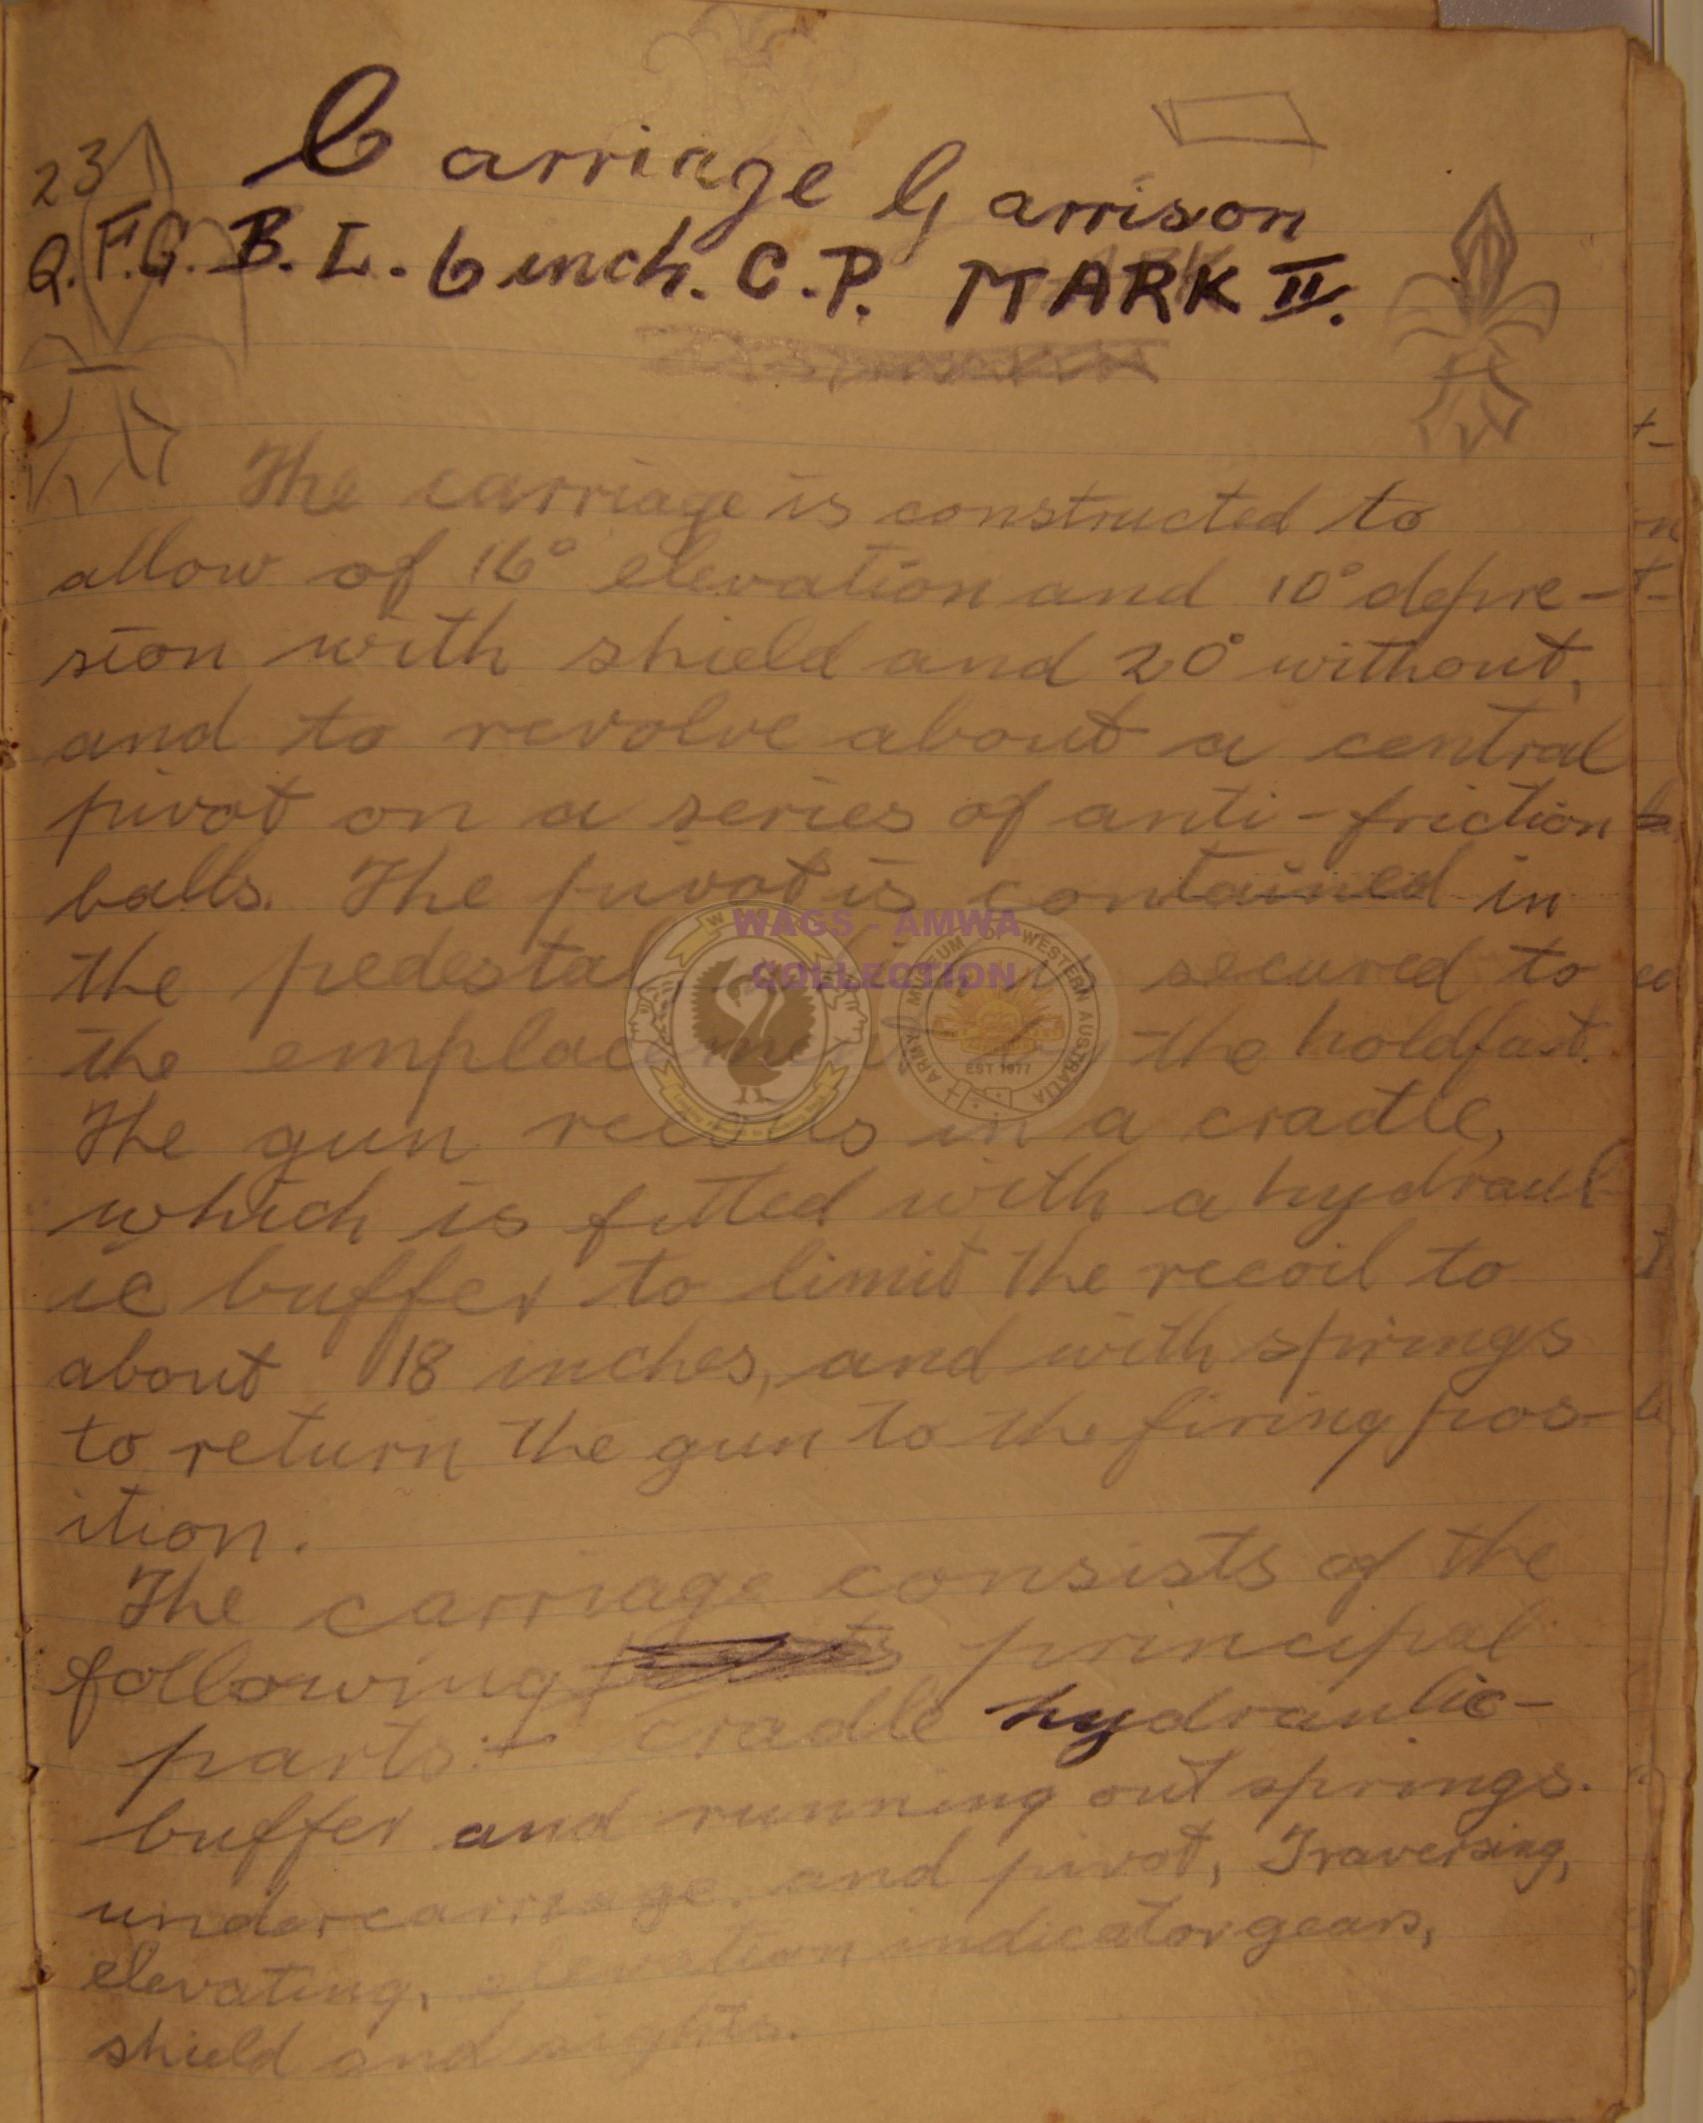 23
Carriage Garrison
Q.F.G. B.L. 6 inch. C.P. MARK II.
The carriage is constructed to
allow of 16° elevation and 10° depre-
sion with shield and 20° without,
and to revolve about a central
pivot on a series of anti-friction
balls. The pivot is contained in
the pedestal which is secured to
the emplacement by the holdfast.
The gun recoils in a cradle,
which is fitted with a hydraul-
ic buffer to limit the recoil to
about 18 inches, and with springs
to return the gun to the firing pos-
ition.
The carriage consists of the
following principal
parts:- cradle hydraulic-
buffer and running out springs.
undercarriage. and pivot, Traversing,
elevating, elevation indicator gears,
shield and sights.
WAGS - AMWA
COLLECTION
ARMY MUSEUM OF WESTERN AUSTRALIA
EST 1977